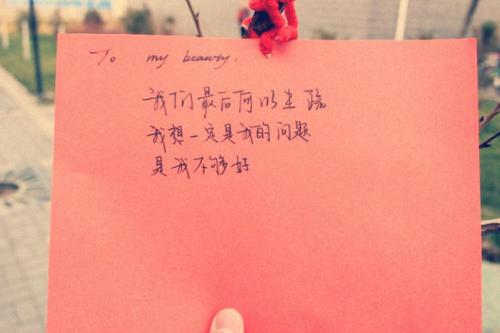 To my beauty.
我们最后何以生疏
我想一定是我的问题
是我不够好